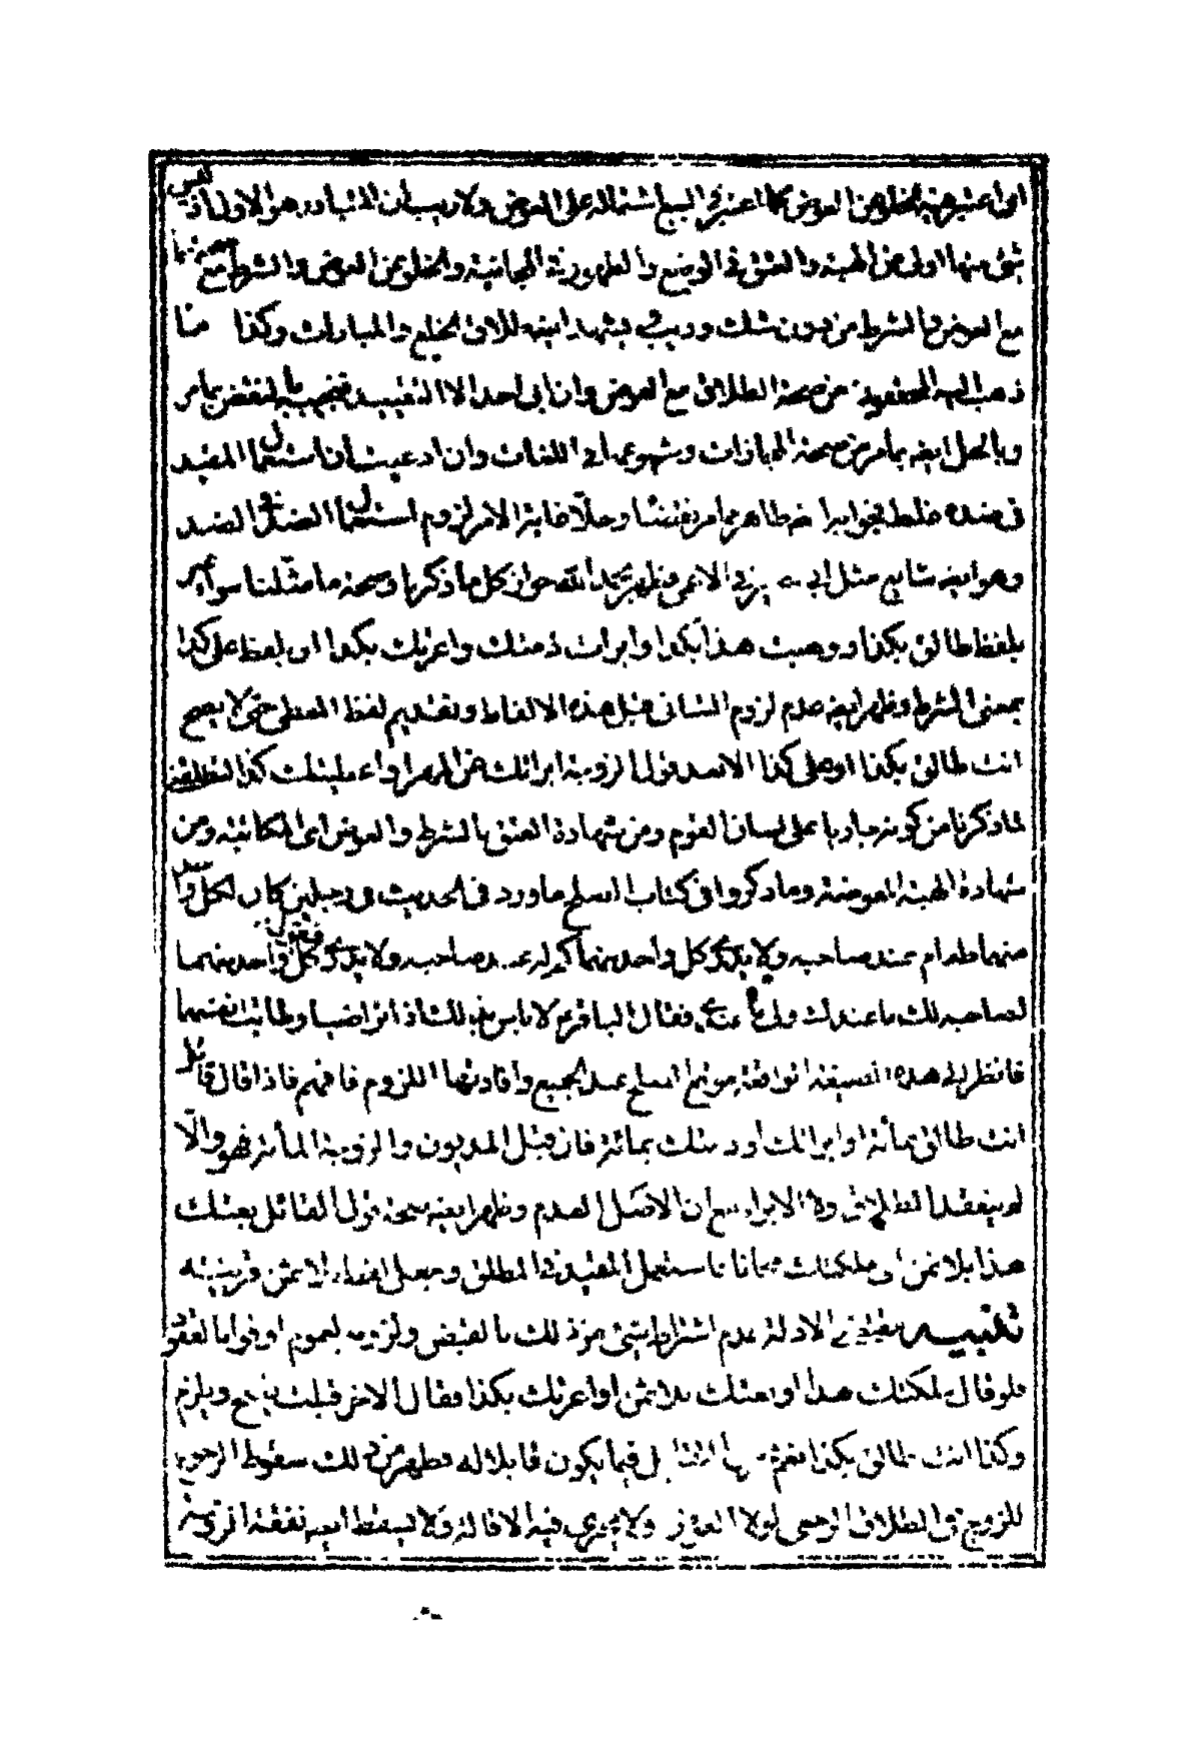 اى اعتبر فيه الخلو عن العوض كما اعتبر فى البيع اشتماله على العوض ولا ريب ان المتبادر هو الاول اذ ليس
شئ منها اولى من الهبة والعتق فى الوضع والظهور فى المجانية والخلو عن العوض والشرط مع صحتهما
مع العوض والشرط من دون شك وريب يشهد ايضا للاول الخلع والمبارات وكذا ما
ذهب اليه المحققون من صحة الطلاق مع العوض وان ابى احد الا التقييد فنجيب بالنقض بما مر
وبالحل ايضا بما مر من صحة المجازات وشيوعها فى اللغات وان ادعيت ان استعمال المقيد
فى ضده غلط فجوابه ظاهر مما مر نقضا وحلا غاية الامر لزوم استعمال الضد فى الضد
وهو ايضا شايع مثل البصير فى الاعمى فظهر بحمد الله جواز كل ما ذكرنا وصحة ما مثلنا سواء عبر
بلفظ طالق بكذا ووهبت هذا بكذا وابرات ذمتك واعرتك بكذا او بلفظ على كذا
بمعنى الشرط وظهر ايضا عدم لزوم الثانى قبل هذه الالفاظ وتقديم لفظ المعطى حتى لا يصح
انت طالق بكذا او على كذا الا بعد قول الزوجة ابراتك عن المهر او اعطيتك كذا لتطلقنى
لما ذكرنا من كونه جاريا على لسان القوم ومن شهادة العتق بالشرط والعوض اى المكاتبة ومن
شهادة الهبة المعوضة وما ذكروا فى كتاب الصلح ما ورد فى الحديث فى رجلين كان لكل واحد
منهما طعام عند صاحبه ولا يدرى كل واحد منهما كم له عند صاحبه ولا يدرى فقال كل واحد منهما
لصاحبه لك ما عندك ولى ما عندى فقال الباقر ع لا باس بذلك اذا تراضيا وطابت نفسهما
فانظر الى هذه الصيغة الواقعة موقع الصلح عند الجميع وافادتها اللزوم فافهم فاذا قال قائل
انت طالق بمائة او ابراتك او دينك بمائة فان قبل المديون والزوجة المائة فهو والا
لم ينعقد الطلاق ولا الابراء مع ان الاصل العدم وظهر ايضا صحة قول القائل بعتك
هذا بلا ثمن اى ملكتك مجانا باستعمال المقيد فى المطلق وجعل لفظ بلا ثمن قرينته
تنبيه مقتضى الادلة عدم اشتراط شئ من ذلك بالقبض ولزومه لعموم اوفوا بالعقود
فلو قال ملكتك هذا او بعتك بلا ثمن او اعرتك بكذا فقال الاخر قبلت يصح ويلزم
وكذا انت طالق بكذا فيما يكون قابلا له فظهر من ذلك سقوط الرجوع
للزوج فى الطلاق الرجعى لولا العوض ولا يجرى فيه الاقالة ولا يسقط ايضا نفقة الزوجية